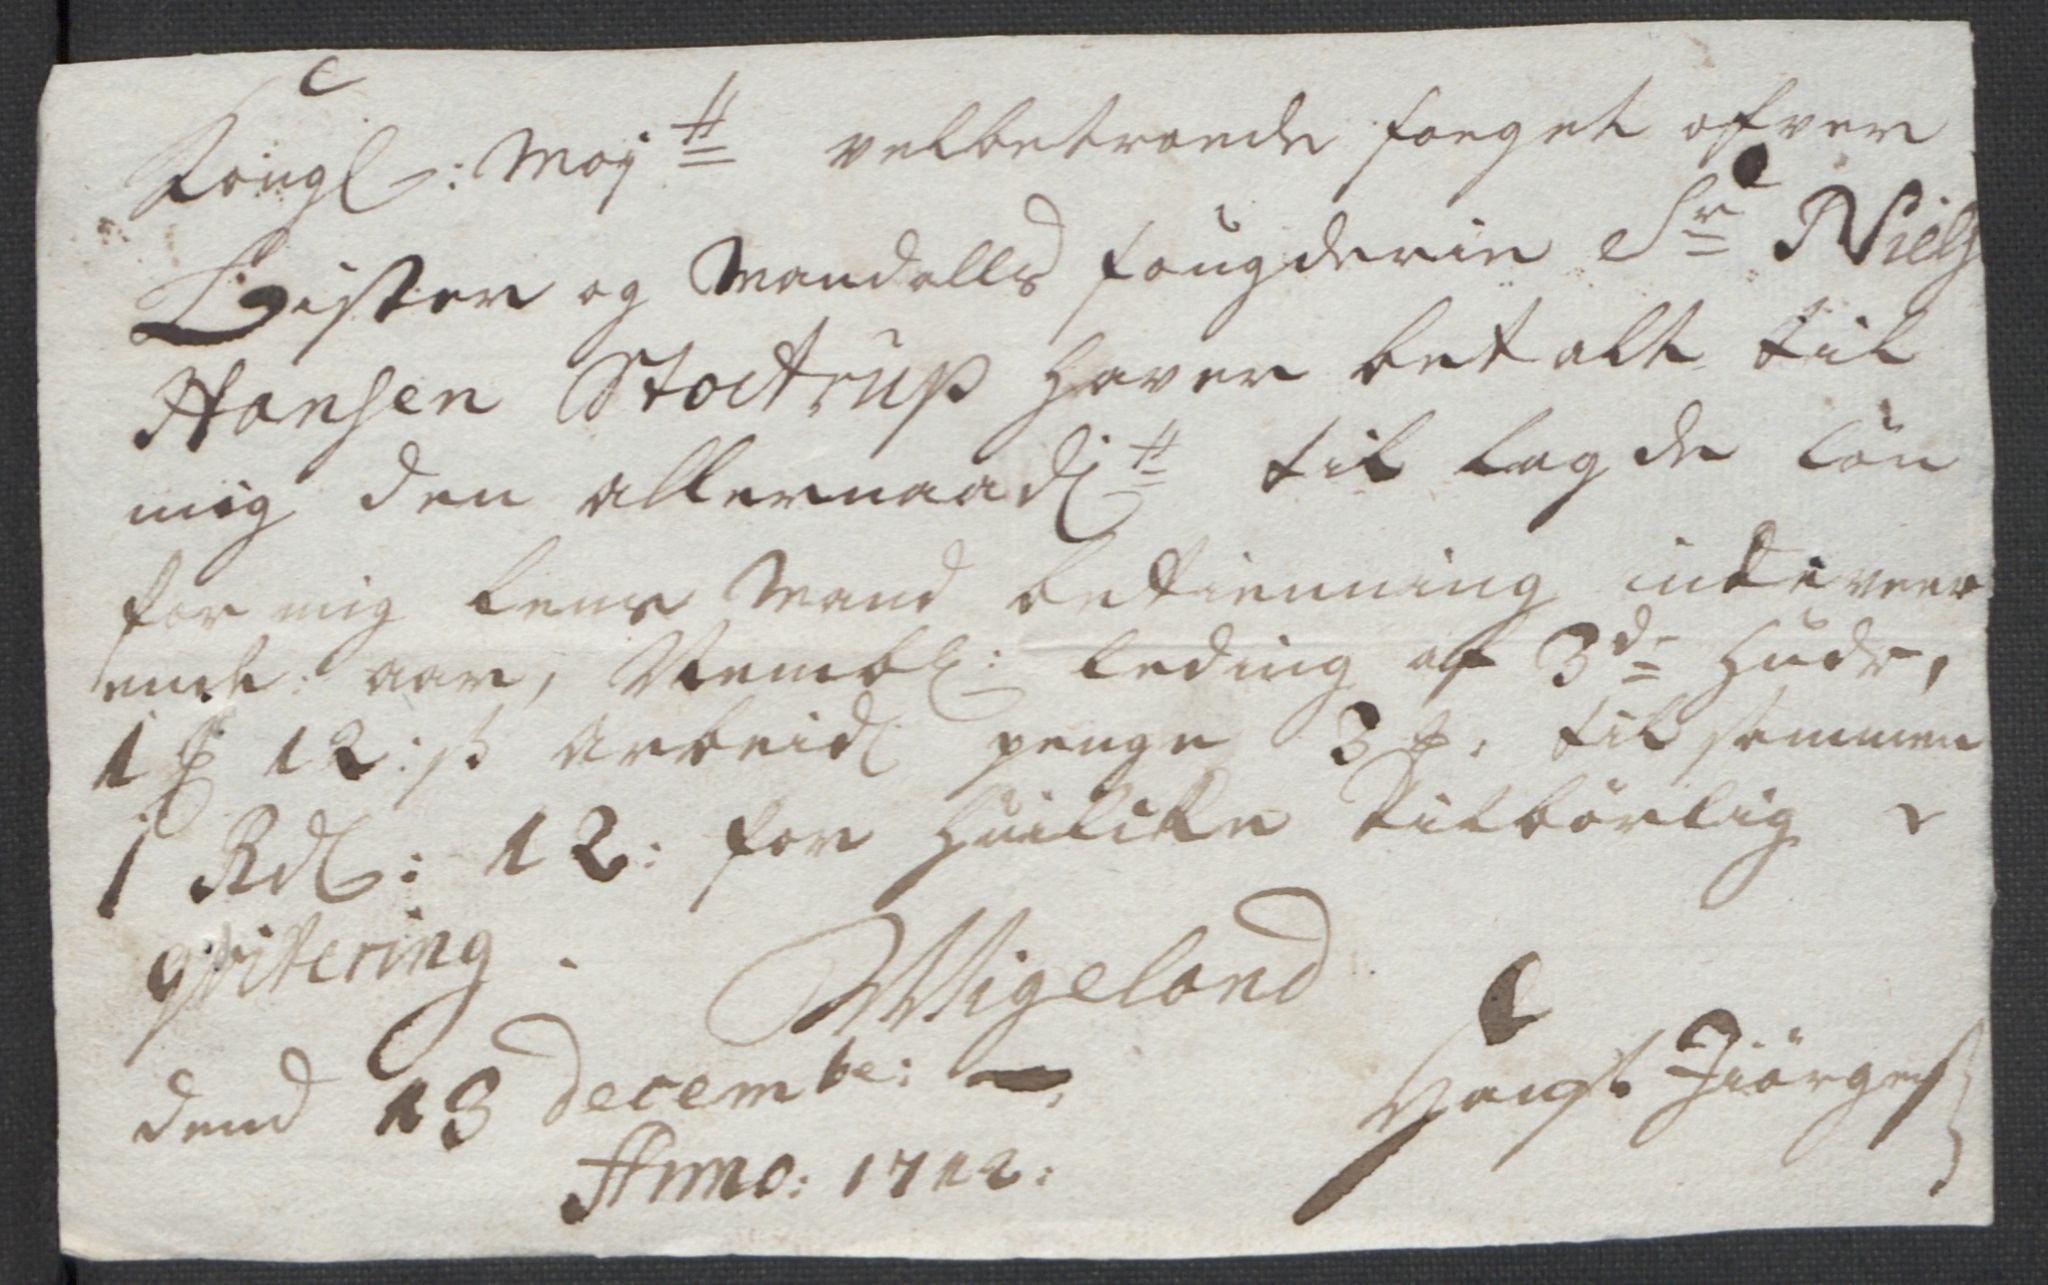 Kongl: Mayᵗᵗ velbetroede foeget ofver
Lister og Mandalls fougderie Sʳ Niels
Hansen Stoctrup haver betalt til
mig den allernaadᵗᵗ til lagde løn
for mig lens Mand bettienning indeverr
ende aar, Nembl: leding af 3dᵉ Hude,
1 12: ß Arbeids penge 3 til sammen
1 Rdl: 12: for huilcke tilbørlig
qvitering.
Wigeland
dend 13 decembe:
Anno: 1712:
Jiörges